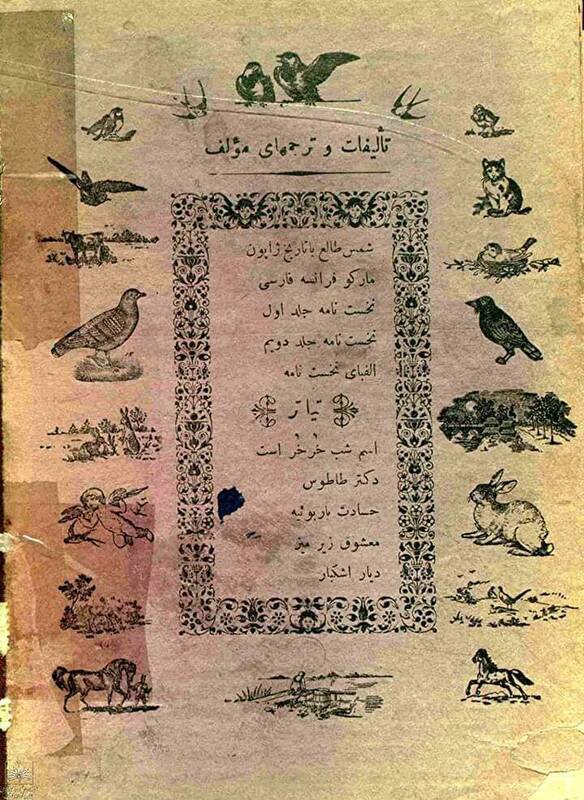 تألیفات و ترجمهای مؤلف
شمس طالع یا تاریخ ژاپون
مارگو فرانسه فارسی
نخست نامه جلد اول
نخست نامه جلد دویم
الفبای نخست نامه
تیاتر
اسم شب خرخر است
دکتر طاطوس
حسادت باربوئیه
معشوق زیر میز
دیار اشکبار